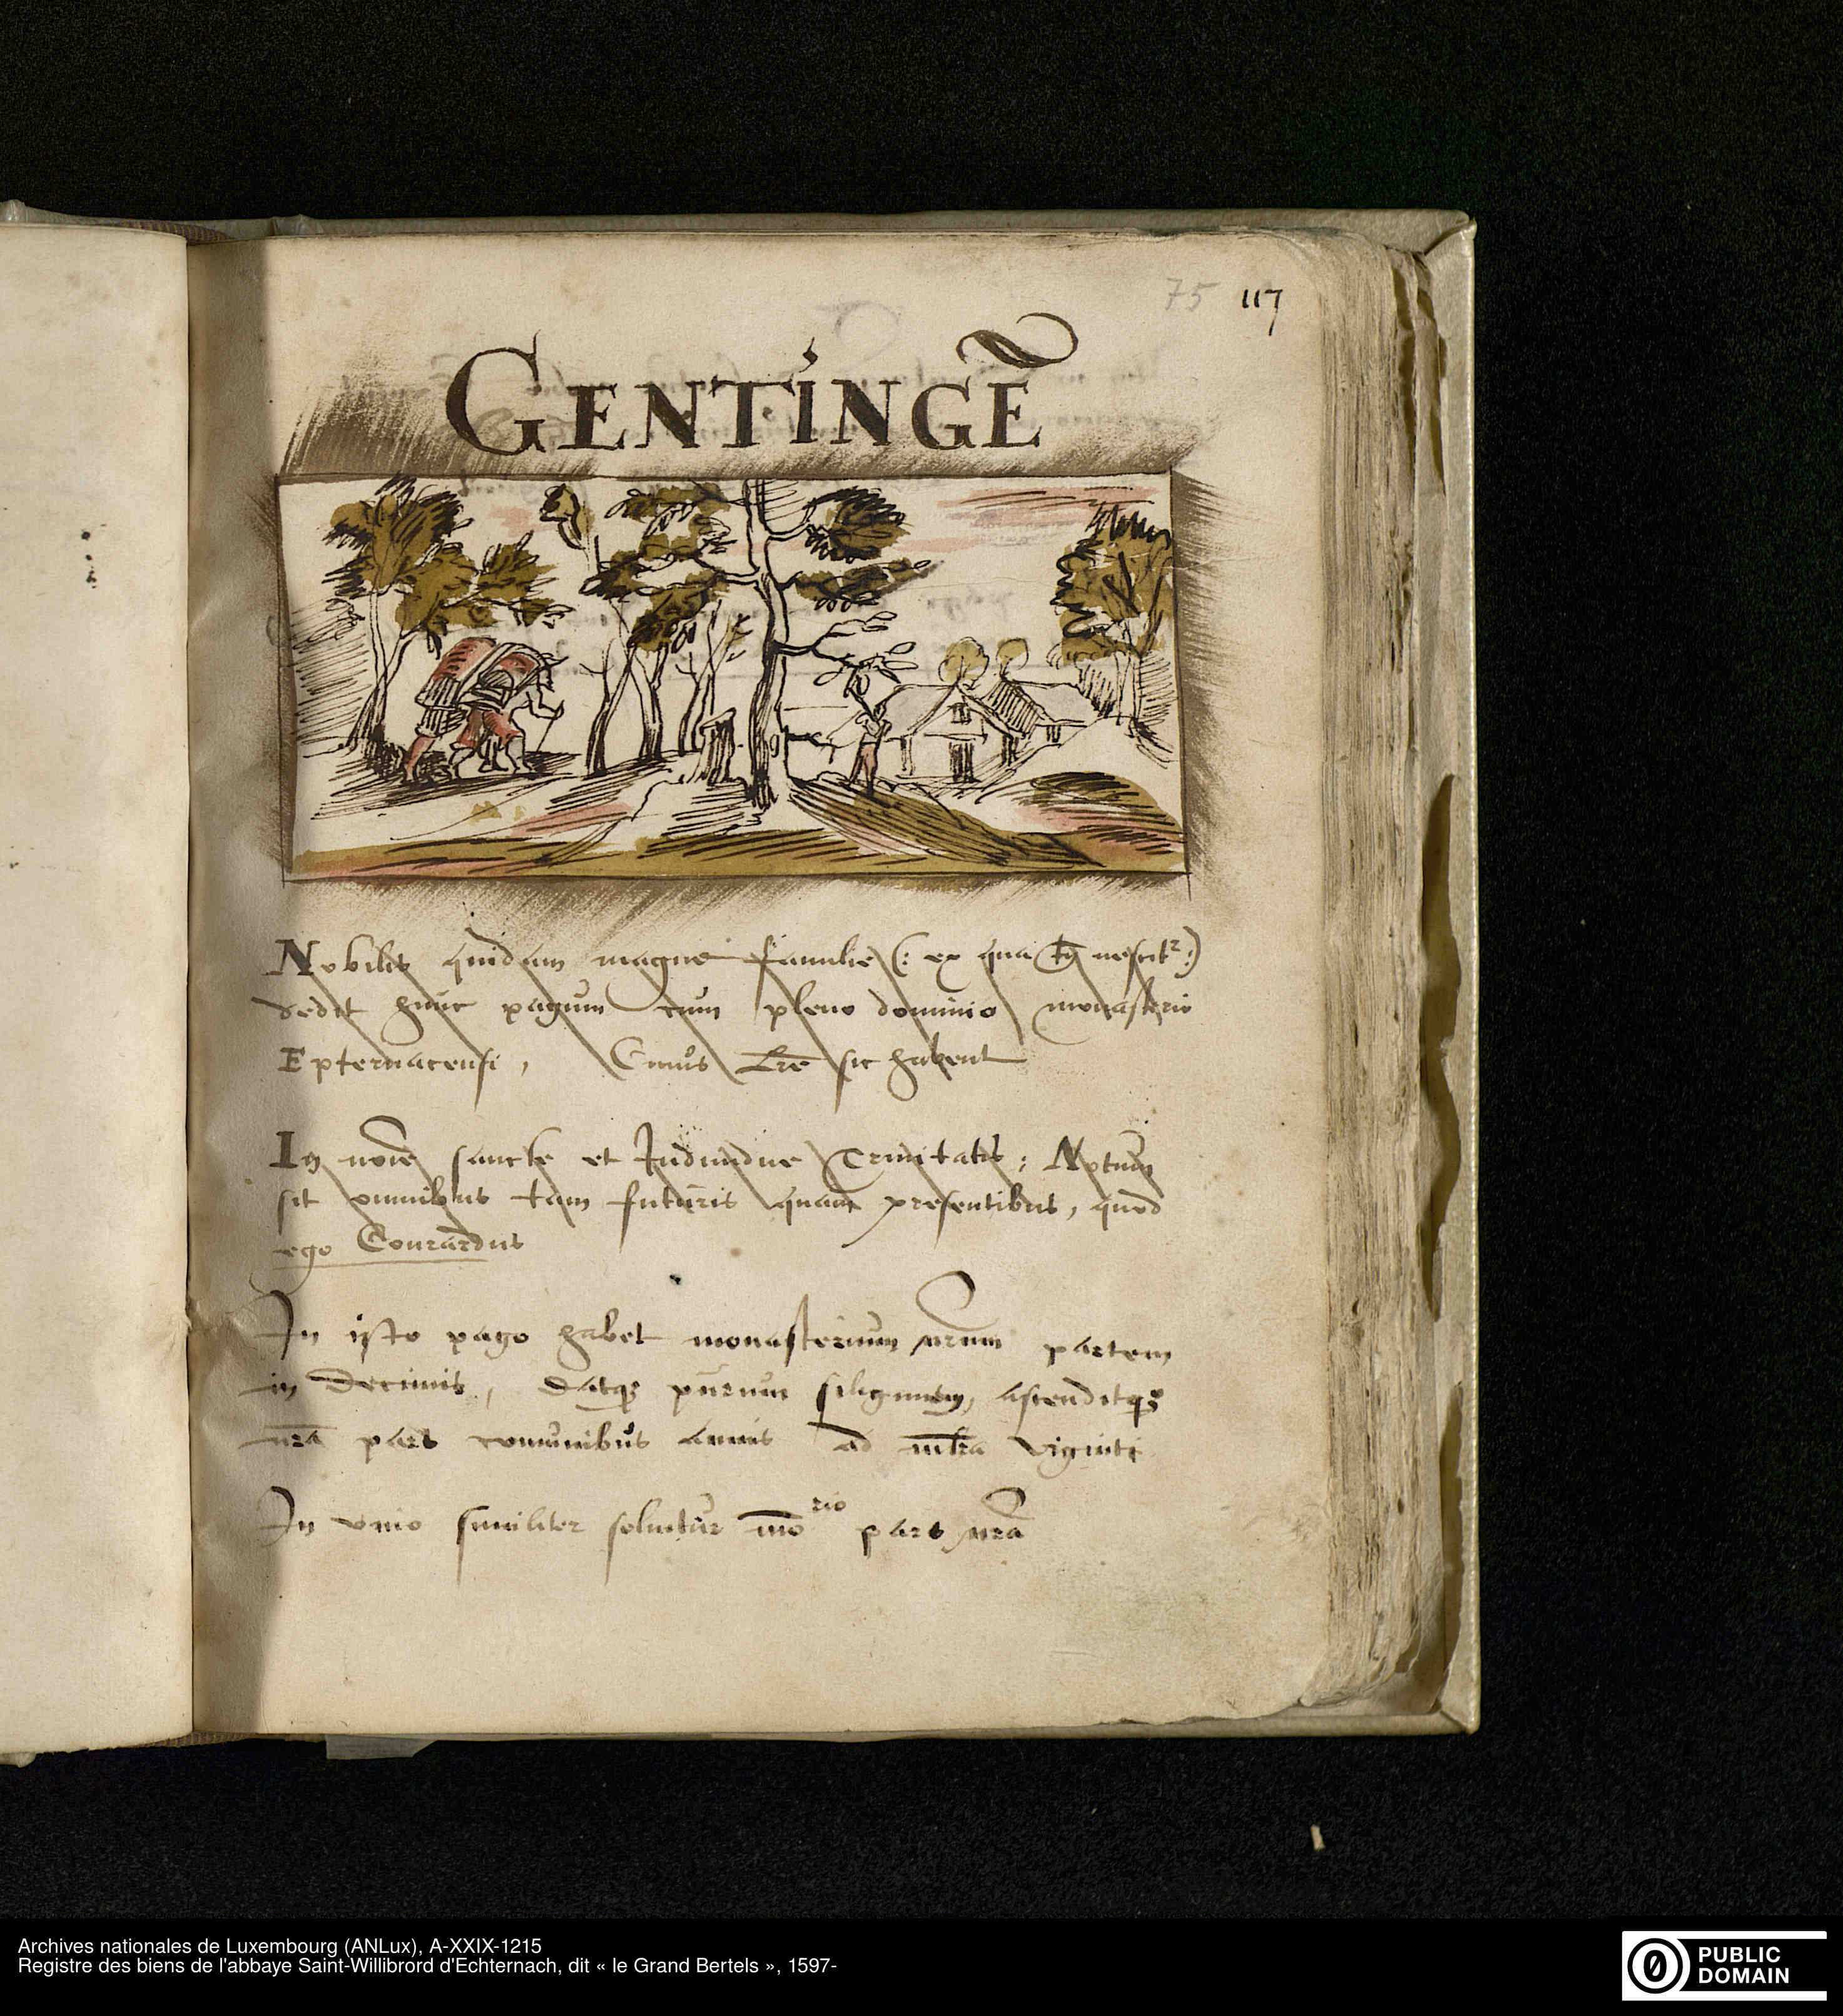 75 117
GENTINGĒ
Nobilis quidam magne familie (: ex qua tn̄ nescitr :)
dedit hunc pagum cum pleno dominio monasterio
Epternacensi, Cuius Lr̄e sic habent
In noīe sancte et Indiuidue Trinitatis : Notum
sit omnibus tam futuris quam presentibus, quod
ego Conrardus
In isto pago habet monasterium nr̄um partem
in Decimis, Datqȝ purum siliginem, ascenditqȝ
nr̄a pars comunibus annis ad mltr̄a viginti
In vino similiter soluitur mō rio pars nr̄a
Archives nationales de Luxembourg (ANLux), A-XXIX-1215
Registre des biens de l'abbaye Saint-Willibrord d'Echternach, dit « le Grand Bertels », 1597-
PUBLIC
DOMAIN